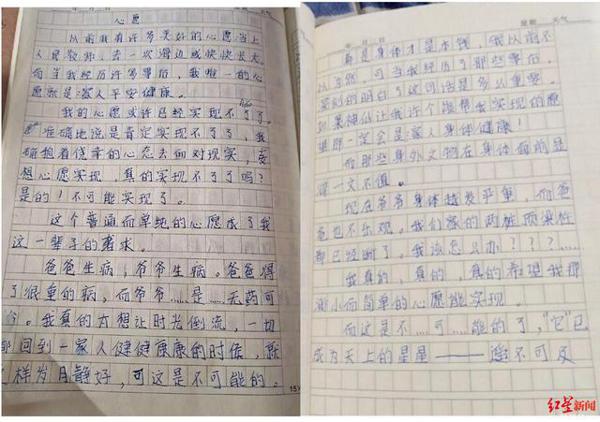 心愿
以前我有许多美好的心愿当上
人民教师、去一次海边或快快长大,
而当我经历许多事后,我唯一的心
愿就是家人平安健康。
我的心愿或许已经实现不了了。
准确地说是肯定实现不了了,我
抱着侥幸的心态去面对现实,
想心愿实现,真的实现不了了吗?
是的!不可能实现了。
这个普通而单纯的心愿成了我
这一辈子的
爸爸生病,爷爷生病。爸爸得
了很重的病,而爷爷……是……无药可
。我真的有想让时光倒流,一切
都回到一家人健健康康的时侯,
样岁月静好,可这是不可能的。
年 月 日
星期 天气
身体才是本钱,我以前不
以为然,可当我经历了那些事后,
深刻的明白了这句话是多么重要。
如果神仙让我许个能帮我实现的愿
望那一定会是家人身体健康!
而那些身外之物在身体面前显
得一文不值。
现在爷爷身体越发严重,而爸
爸也不乐观。我们家的两
都已经断了。我该怎么办???……
我真的,真的,真的希望我那
渺小而简单的心愿能实现。
而这是不……可……能的了,"它"已
成为天上的星星——遥不可及
红星新闻